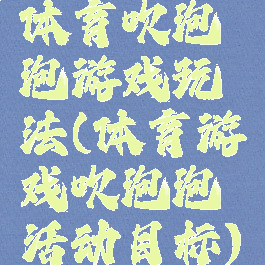 体育吹泡
泡游戏玩
法(体育游
戏吹泡泡
活动目标)